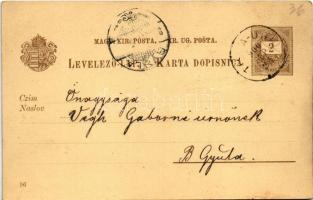 36
MAGY. KIR. POSTA. KR. UG. POŠTA.
LEVELEZŐ- KARTA DOPISNICA
2
Czim
Naslov
Önagysága
Végh Gáborné urnőnek
B Gyula
96